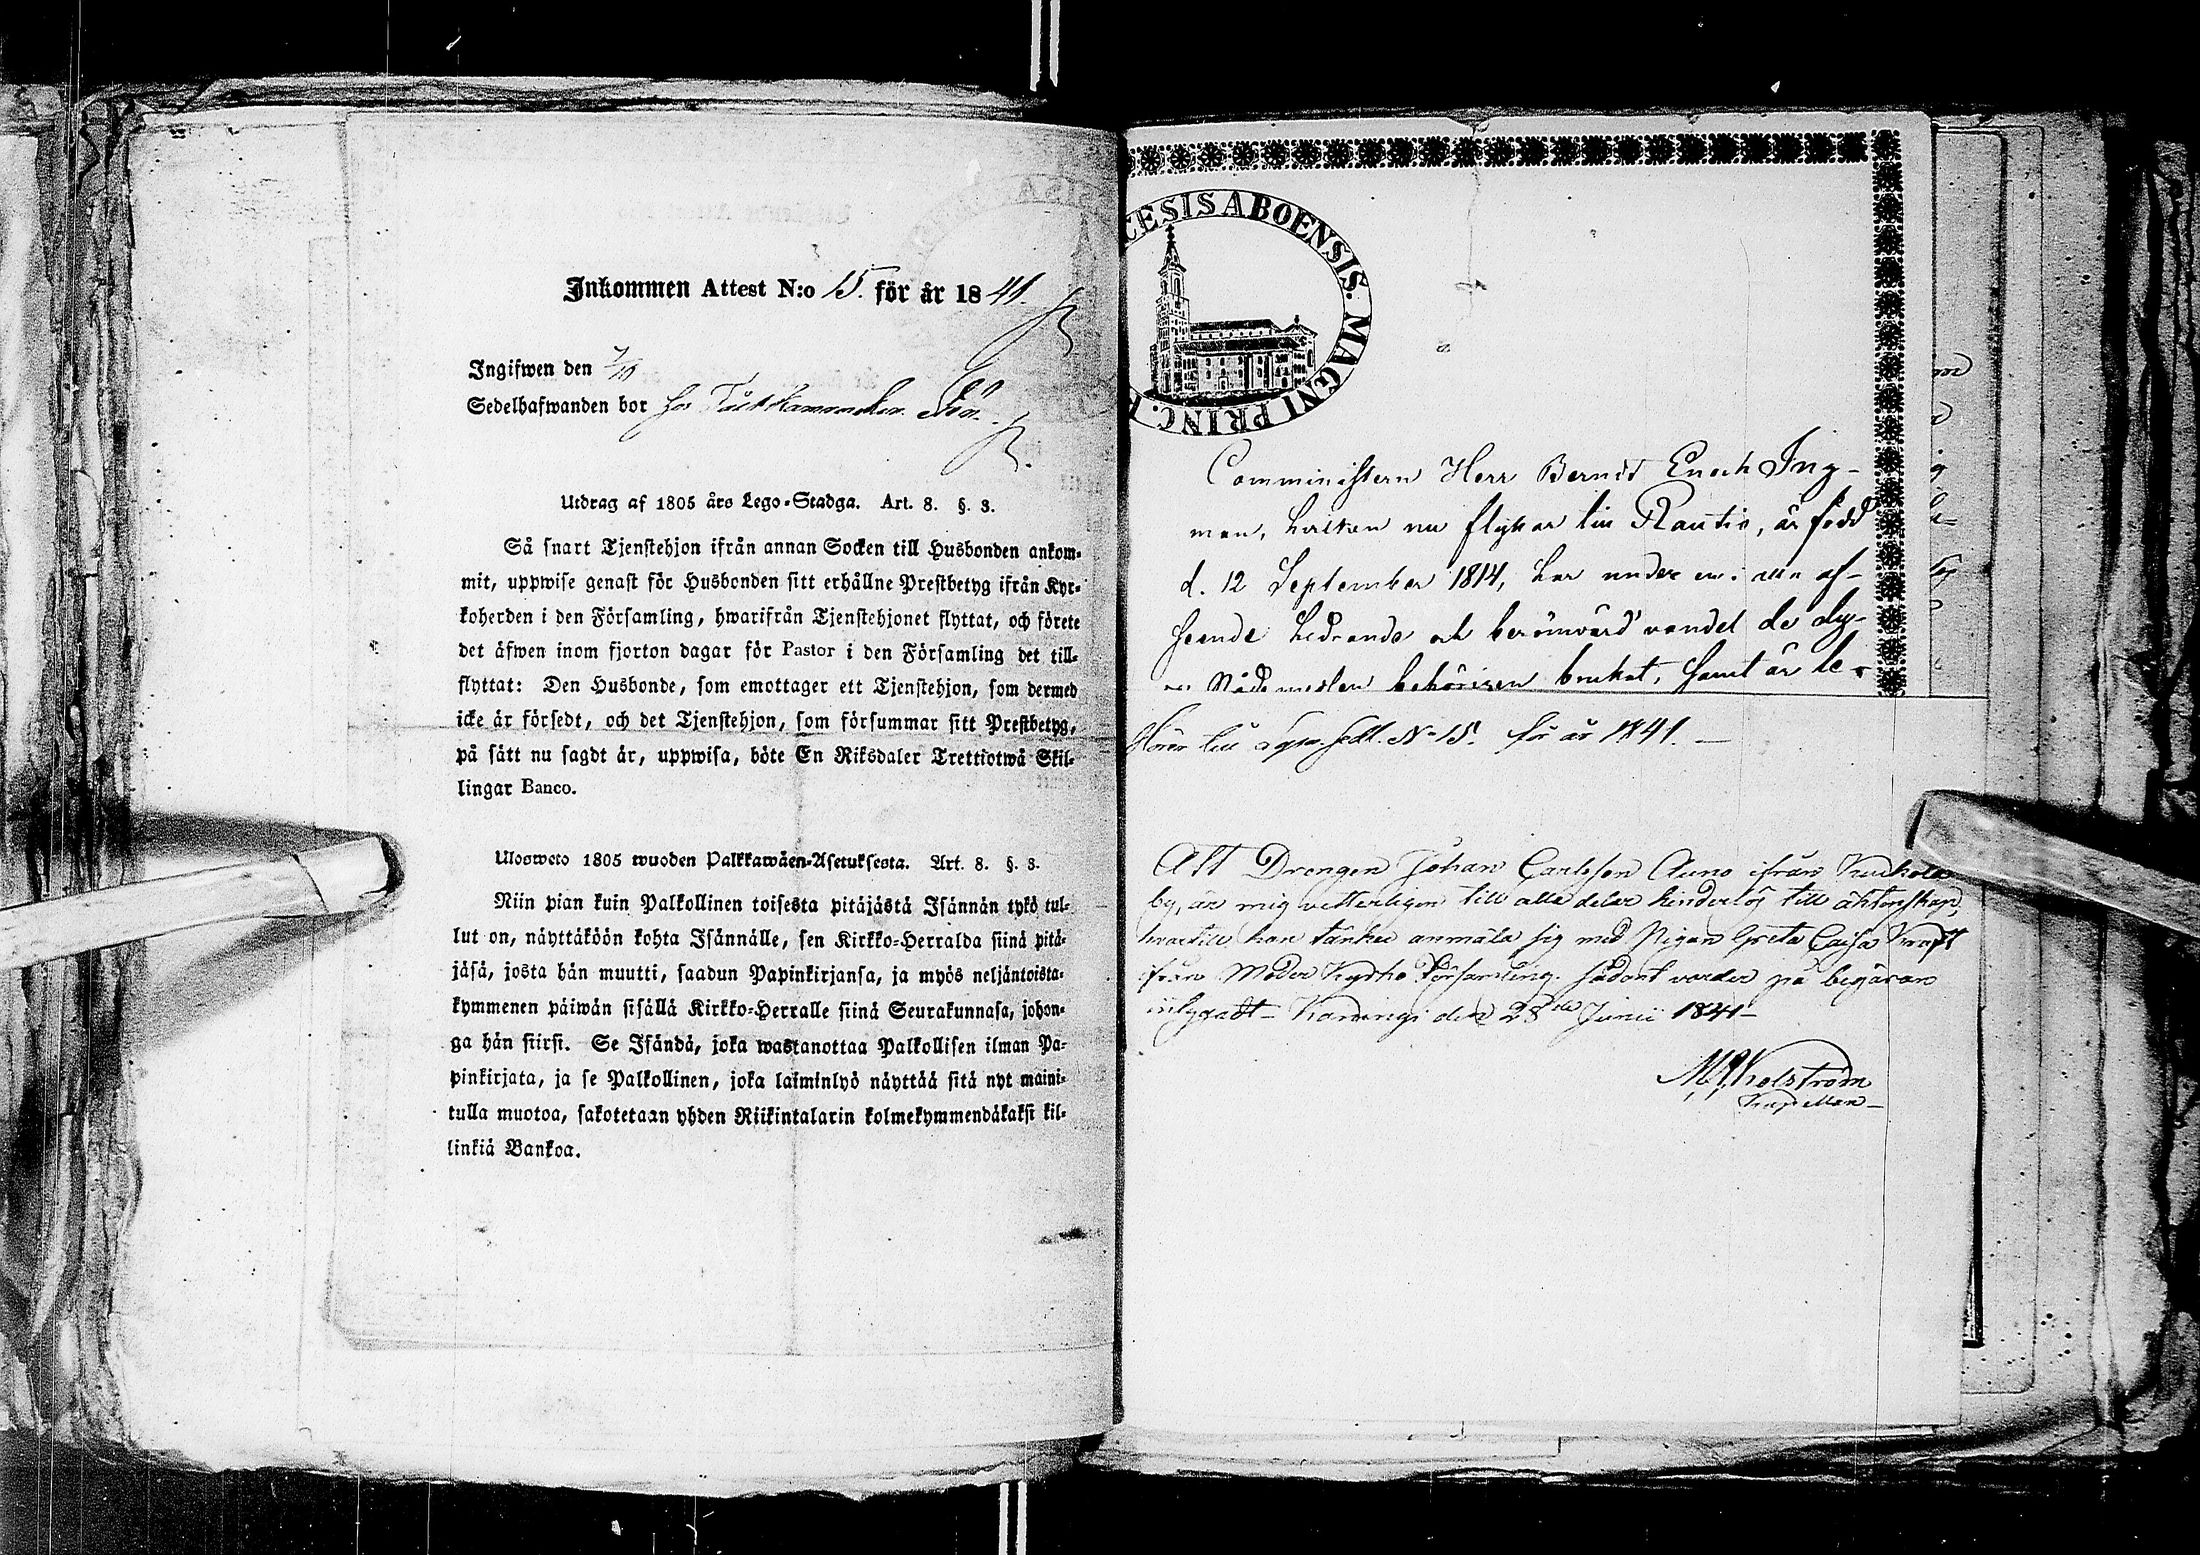 Inkommen Attest N:o 15. för år 1841.
Ingifwen den 7/10
Sedelhafwanden bor hos
Utdrag af 1805 års Lego-Stadga. Art. 8. §. 3.
Så snart Tjenstehjon ifrån annan Socken till Husbonden ankom-
mit, uppwise genast för Husbonden sitt erhållne Prestbetyg ifrån Kyr-
koherden i den Församling, hwarifrån Tjenstehjonet flyttat, och förete
det äfwen inom fjorton dagar för Pastor i den Församling det till-
flyttat: Den Husbonde, som emottager ett Tjenstehjon, som dermed
icke är försedt, och det Tjenstehjon, som försummar sitt Prestbetyg,
på sätt nu sagdt är, uppwisa, böte En Riksdaler Trettiotwå Skil-
lingar Banco.
Ulosweto 1805 wuoden Palkkawäen-Asetuksesta. Art. 8. §. 3.
Niin pian kuin Palkollinen toisesta pitäjästä Isännän tykö tul-
lut on, näyttäköön kohta Isännälle, sen Kirkko-Herralda siinä pitä-
jäsä, josta hän muutti, saadun Papinkirjansa, ja myös neljäntoista-
kymmenen päiwän sisällä Kirkko-Herralle siinä Seurakunnasa, johon-
ga hän siirsi. Se Isändä, joka wastanottaa Palkollisen ilman Pa-
pinkirjata, ja se Palkollinen, joka laiminlyö näyttää sitä nyt maini-
tulla muotoa, sakotetaan yhden Riikintalarin kolmekymmendäkaksi kil-
linkiä Bankoa.
CESIS ABOENSIS. MAGNI PRINC. F
Comministern Herr Berndt Enoch Ing-
man, hvilken nu flyttar till Rautio, är född
d. 12 September 1814, har under en i alla af-
seende hedrande och berömvärd vandel de dy-
ra Nådemedlen behörigen brukat, samt är le-
Hörer till Sedl. No 15. för år 1841.
Att Drengen Johan Carlsson Auno ifrån
by, är mig vetterligen till alla delar hinderlös till äktenskap,
hvartill han tänker anmäla sig med Pigan Greta Caisa Kraft
ifrån Moder Kyrko Församling. Sådant varder på begäran
intygadt – den 28de Junii 1841 –
Kapellan –